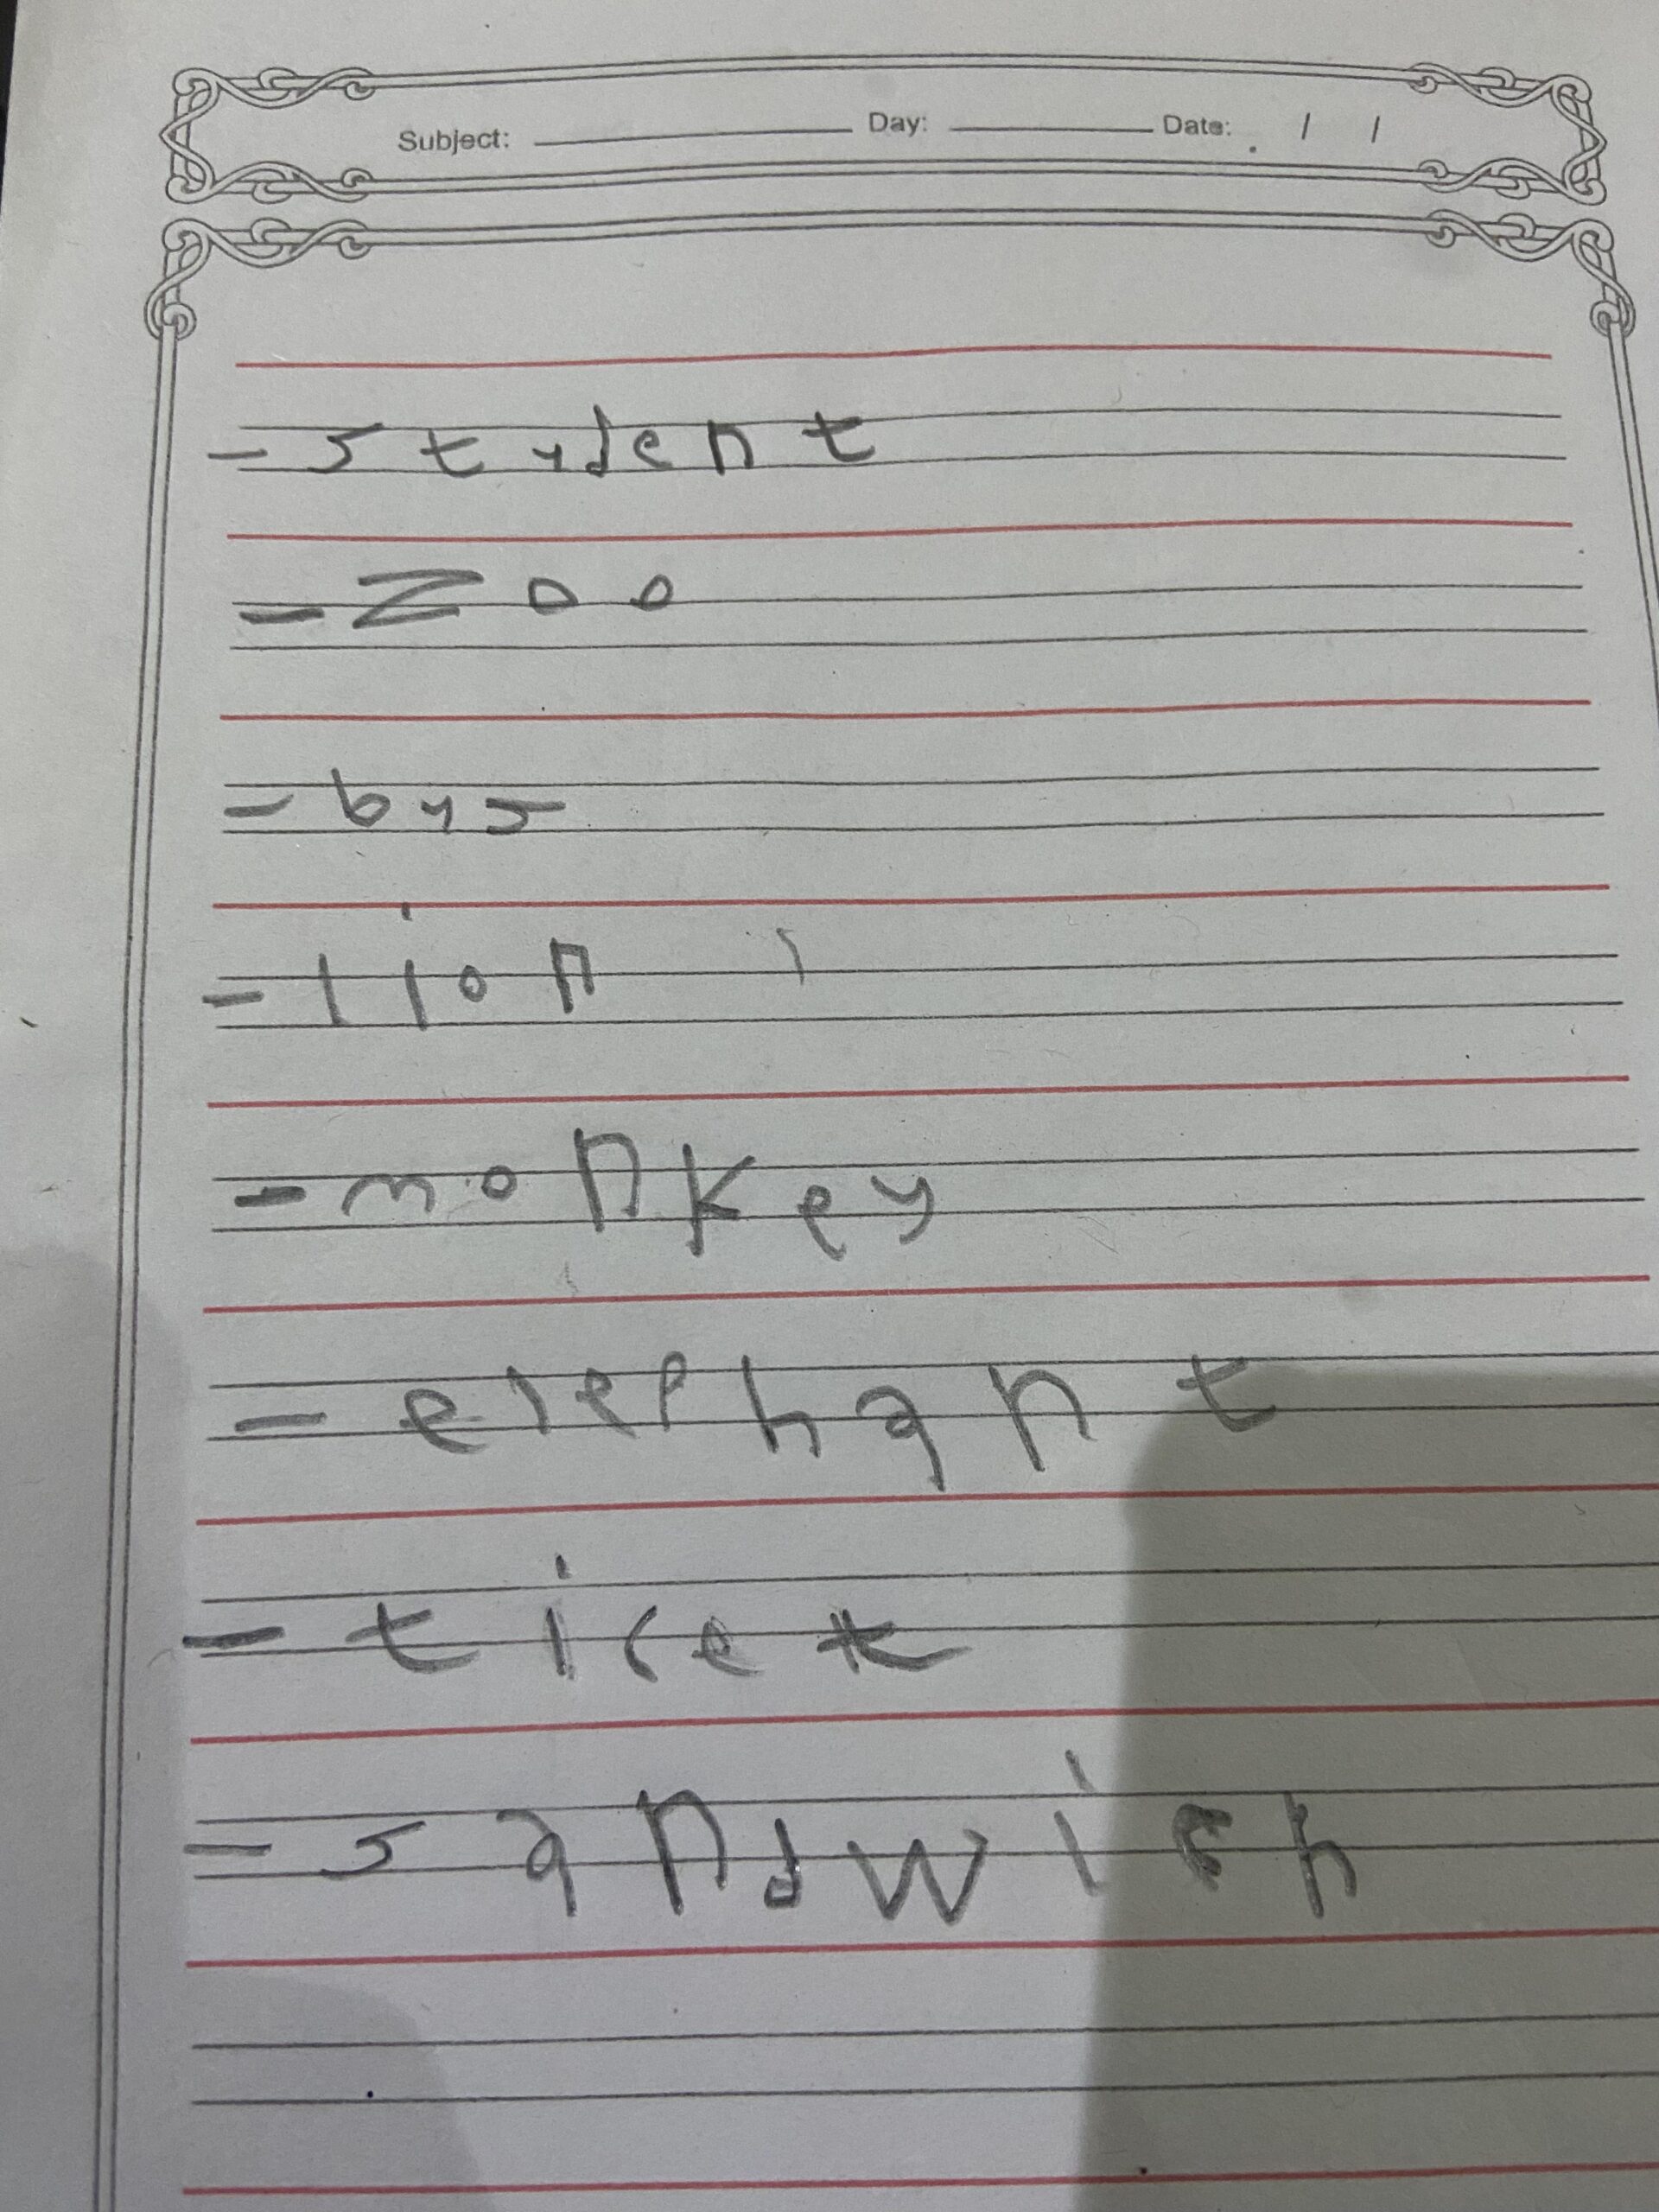 Subject: Day: Date: / /
- student
- Zoo
- bus
- lion
- monkey
- elephant
- ticet
- sandwich